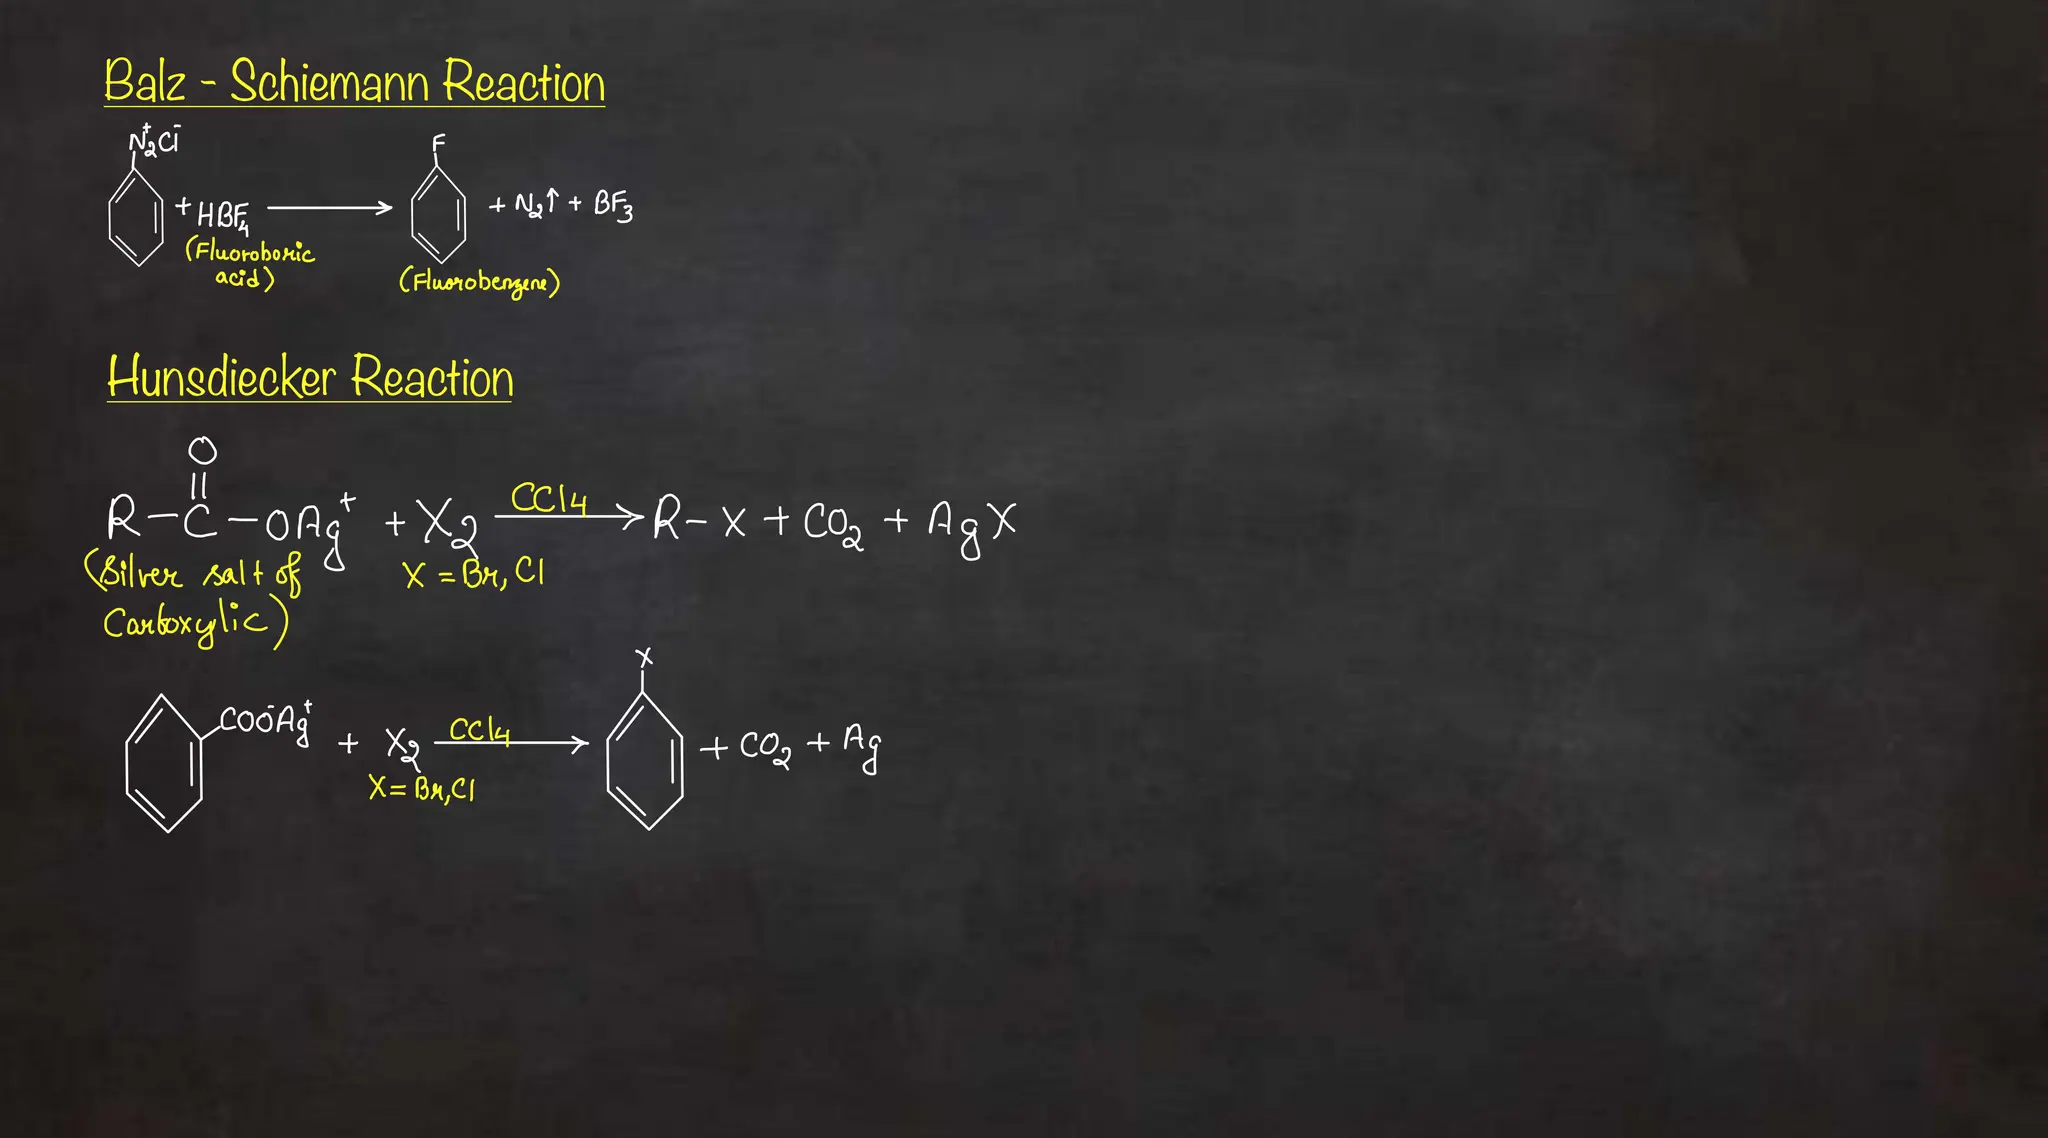 Balz - Schiemann Reaction
N₂⁺Cl⁻
F
+ HBF₄ ⟶ + N₂↑ + BF₃
(Fluoroboric
acid)
(Fluorobenzene)
Hunsdiecker Reaction
O
R–C–OAg⁺ + X₂ CCl₄ ⟶ R–X + CO₂ + AgX
(Silver salt of
Carboxylic)
X = Br, Cl
X
COO⁻Ag⁺ + X₂ CCl₄ ⟶ + CO₂ + Ag
X = Br, Cl